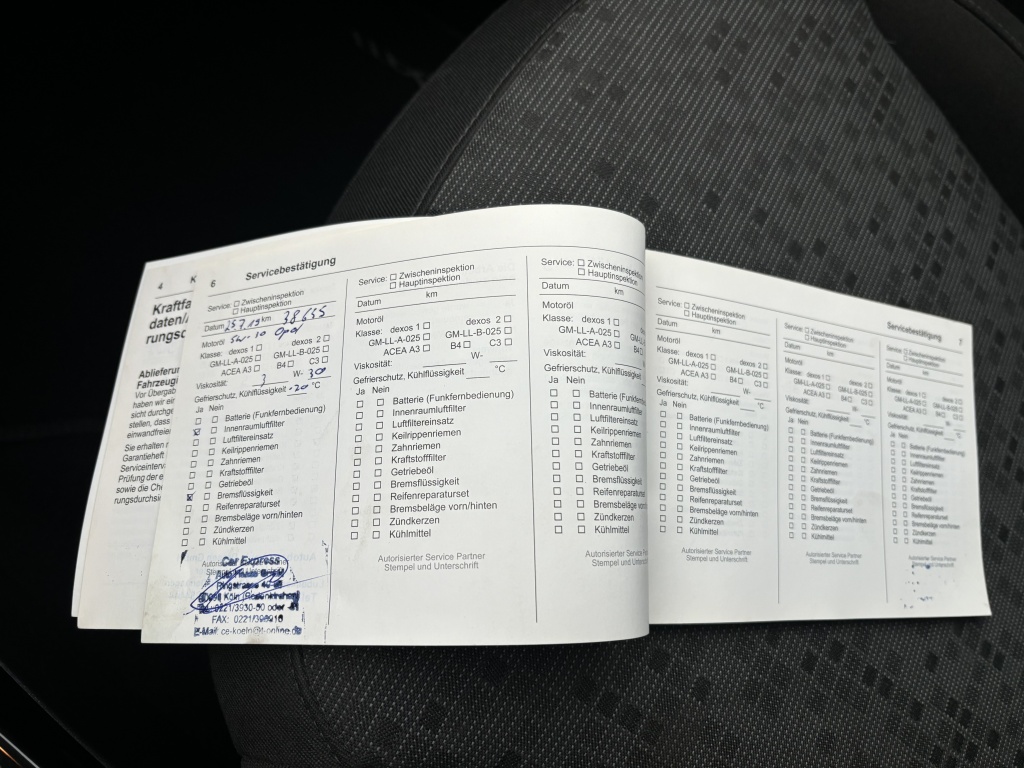 4 K
Kraftfa
daten/
rungsd
Ablieferun
Fahrzeugi
Vor Übergab
haben wir ein
sicht durchge
stellen, dass
einwandfreie
Sie erhalten
Garantieheft
Serviceinterv
Prüfung der e
sowie die Che
rungsdurchsic
6 Servicebestätigung
Service: ☐ Zwischeninspektion
☐ Hauptinspektion
Datum 25.7.19 km 38.635
Motoröl 5w-30 Opel
Klasse: dexos 1 ☐ dexos 2 ☐
GM-LL-A-025 ☐ GM-LL-B-025 ☐
ACEA A3 ☐ B4 ☐ C3 ☐
Viskosität: W- 30
Gefrierschutz, Kühlflüssigkeit -20 °C
Ja Nein
☐ ☐ Batterie (Funkfernbedienung)
☒ ☐ Innenraumluftfilter
☐ ☐ Luftfiltereinsatz
☐ ☐ Keilrippenriemen
☐ ☐ Zahnriemen
☐ ☐ Kraftstofffilter
☐ ☐ Getriebeöl
☒ ☐ Bremsflüssigkeit
☐ ☐ Reifenreparaturset
☐ ☐ Bremsbeläge vorn/hinten
☐ ☐ Zündkerzen
☐ ☐ Kühlmittel
Car Express
Köln
0221/3930-80 oder
FAX: 0221/
E-Mail: ce-koeln@t-online.de
Service: ☐ Zwischeninspektion
☐ Hauptinspektion
Datum km
Motoröl
Klasse: dexos 1 ☐ dexos 2 ☐
GM-LL-A-025 ☐ GM-LL-B-025 ☐
ACEA A3 ☐ B4 ☐ C3 ☐
Viskosität: W-
Gefrierschutz, Kühlflüssigkeit °C
Ja Nein
☐ ☐ Batterie (Funkfernbedienung)
☐ ☐ Innenraumluftfilter
☐ ☐ Luftfiltereinsatz
☐ ☐ Keilrippenriemen
☐ ☐ Zahnriemen
☐ ☐ Kraftstofffilter
☐ ☐ Getriebeöl
☐ ☐ Bremsflüssigkeit
☐ ☐ Reifenreparaturset
☐ ☐ Bremsbeläge vorn/hinten
☐ ☐ Zündkerzen
☐ ☐ Kühlmittel
Autorisierter Service Partner
Stempel und Unterschrift
Service: ☐ Zwischeninspektion
☐ Hauptinspektion
Datum km
Motoröl
Klasse: dexos 1 ☐
GM-LL-A-025 ☐ GM-LL
ACEA A3 ☐ B4
Viskosität:
Gefrierschutz, Kühlflüssigkeit
Ja Nein
☐ ☐ Batterie (Funkfern
☐ ☐ Innenraumluftfilter
☐ ☐ Luftfiltereinsatz
☐ ☐ Keilrippenriemen
☐ ☐ Zahnriemen
☐ ☐ Kraftstofffilter
☐ ☐ Getriebeöl
☐ ☐ Bremsflüssigkeit
☐ ☐ Reifenreparaturset
☐ ☐ Bremsbeläge vorn/h
☐ ☐ Zündkerzen
☐ ☐ Kühlmittel
Autorisierter Service
Stempel und Unters
Service: ☐ Zwischeninspektion
☐ Hauptinspektion
Datum km
Motoröl
Klasse: dexos 1 ☐ dexos 2 ☐
GM-LL-A-025 ☐ GM-LL-B-025 ☐
ACEA A3 ☐ B4 ☐ C3 ☐
Viskosität: W-
Gefrierschutz, Kühlflüssigkeit °C
Ja Nein
☐ ☐ Batterie (Funkfernbedienung)
☐ ☐ Innenraumluftfilter
☐ ☐ Luftfiltereinsatz
☐ ☐ Keilrippenriemen
☐ ☐ Zahnriemen
☐ ☐ Kraftstofffilter
☐ ☐ Getriebeöl
☐ ☐ Bremsflüssigkeit
☐ ☐ Reifenreparaturset
☐ ☐ Bremsbeläge vorn/hinten
☐ ☐ Zündkerzen
☐ ☐ Kühlmittel
Autorisierter Service Partner
Stempel und Unterschrift
Service: ☐ Zwischeninspektion
☐ Hauptinspektion
Datum km
Motoröl
Klasse: dexos 1 ☐ dexos 2 ☐
GM-LL-A-025 ☐ GM-LL-B-025 ☐
ACEA A3 ☐ B4 ☐ C3 ☐
Viskosität: W-
Gefrierschutz, Kühlflüssigkeit °C
Ja Nein
☐ ☐ Batterie (Funkfernbedienung)
☐ ☐ Innenraumluftfilter
☐ ☐ Luftfiltereinsatz
☐ ☐ Keilrippenriemen
☐ ☐ Zahnriemen
☐ ☐ Kraftstofffilter
☐ ☐ Getriebeöl
☐ ☐ Bremsflüssigkeit
☐ ☐ Reifenreparaturset
☐ ☐ Bremsbeläge vorn/hinten
☐ ☐ Zündkerzen
☐ ☐ Kühlmittel
Autorisierter Service Partner
Stempel und Unterschrift
Servicebestätigung 7
Service: ☐ Zwischeninspektion
☐ Hauptinspektion
Datum km
Motoröl
Klasse: dexos 1 ☐ dexos 2 ☐
GM-LL-A-025 ☐ GM-LL-B-025 ☐
ACEA A3 ☐ B4 ☐ C3 ☐
Viskosität: W-
Gefrierschutz, Kühlflüssigkeit °C
Ja Nein
☐ ☐ Batterie (Funkfernbedienung)
☐ ☐ Innenraumluftfilter
☐ ☐ Luftfiltereinsatz
☐ ☐ Keilrippenriemen
☐ ☐ Zahnriemen
☐ ☐ Kraftstofffilter
☐ ☐ Getriebeöl
☐ ☐ Bremsflüssigkeit
☐ ☐ Reifenreparaturset
☐ ☐ Bremsbeläge vorn/hinten
☐ ☐ Zündkerzen
☐ ☐ Kühlmittel
Autorisierter Service Partner
Stempel und Unterschrift